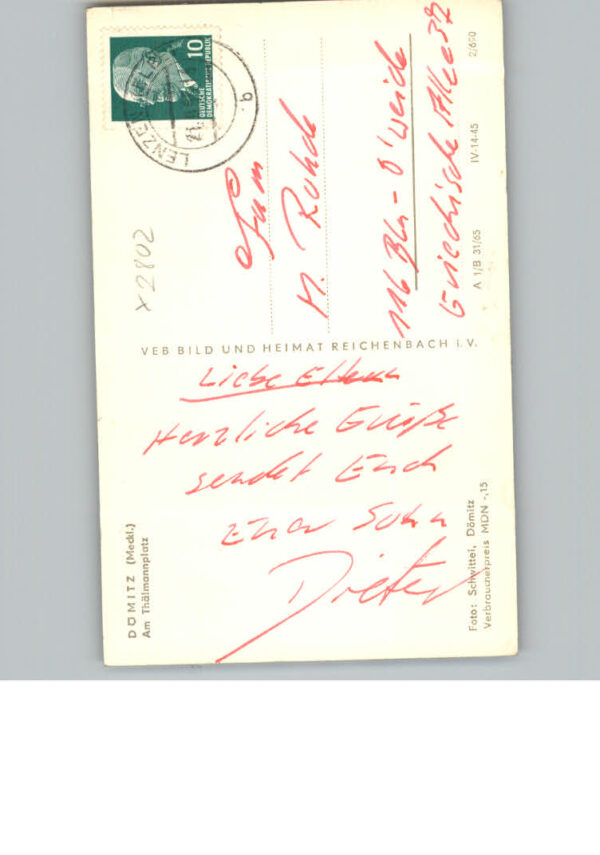 DÖMITZ (Meckl.)
Am Thälmannplatz
Liebe Eltern
Herzliche Grüße
sendet Euch
Euer Sohn
Dieter
Foto: Schwittel, Dömitz
Verbraucherpreis MDN -,15
VEB BILD UND HEIMAT REICHENBACH i. V.
x 2802
10
DEUTSCHE
DEMOKRATISCHE REPUBLIK
LENZEN
b
Fam
M. Ruhde
116 Bln - O'weide
Griechische Allee 37
A 1/B 31/65 IV-14-45 2/600